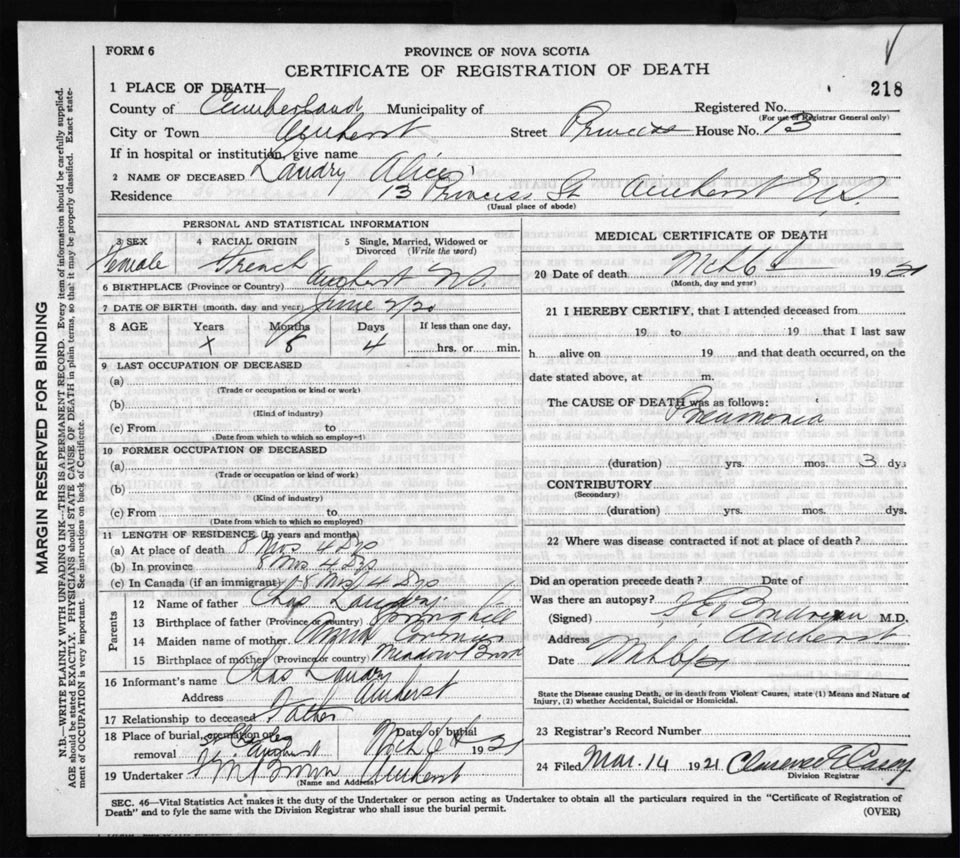 FORM 6
PROVINCE OF NOVA SCOTIA
CERTIFICATE OF REGISTRATION OF DEATH
218
1 PLACE OF DEATH—
County of Cumberland Municipality of Registered No.
(For use of Registrar General only)
City or Town Amherst Street Princess House No. 13
If in hospital or institution, give name
2 NAME OF DECEASED Landry Alice
Residence 13 Princess St Amherst N.S.
(Usual place of abode)
PERSONAL AND STATISTICAL INFORMATION
3 SEX 4 RACIAL ORIGIN 5 Single, Married, Widowed or Divorced (Write the word)
Female French
6 BIRTHPLACE (Province or Country) Amherst N.S.
7 DATE OF BIRTH (month, day and year) June 2/20
8 AGE Years Months Days If less than one day,
x 8 4 hrs. or min.
9 LAST OCCUPATION OF DECEASED
(a)
(Trade or occupation or kind or work)
(b)
(Kind of industry)
(c) From to
(Date from which to which so employed)
10 FORMER OCCUPATION OF DECEASED
(a)
(Trade or occupation or kind of work)
(b)
(Kind of industry)
(c) From to
(Date from which to which so employed)
11 LENGTH OF RESIDENCE (In years and months)
(a) At place of death 8 Mos 4 Dys
(b) In province 8 Mos 4 Dys
(c) In Canada (if an immigrant) 8 Mos 4 Dys
Parents
12 Name of father Chas Landry
13 Birthplace of father (Province or country) Springhill
14 Maiden name of mother
15 Birthplace of mother (Province or country) Meadow Brook
16 Informant's name Chas Landry
Address Amherst
17 Relationship to deceased Father
18 Place of burial, cremation or removal Amherst
Date of burial Mch 1921
19 Undertaker Brown Amherst
(Name and Address)
MEDICAL CERTIFICATE OF DEATH
20 Date of death Mch 6 1921
(Month, day and year)
21 I HEREBY CERTIFY, that I attended deceased from
19 to 19 that I last saw
h alive on 19 and that death occurred, on the
date stated above, at m.
The CAUSE OF DEATH was as follows:
Pneumonia
(duration) yrs. mos. 3 dys
CONTRIBUTORY
(Secondary)
(duration) yrs. mos. dys.
22 Where was disease contracted if not at place of death?
Did an operation precede death? Date of
Was there an autopsy?
(Signed) M.D.
Address Amherst
Date
State the Disease causing Death, or in death from Violent Causes, state (1) Means and Nature of
Injury, (2) whether Accidental, Suicidal or Homicidal.
23 Registrar's Record Number
24 Filed Mar. 14 1921
Division Registrar
SEC. 46—Vital Statistics Act makes it the duty of the Undertaker or person acting as Undertaker to obtain all the particulars required in the "Certificate of Registration of
Death" and to fyle the same with the Division Registrar who shall issue the burial permit.
(OVER)
MARGIN RESERVED FOR BINDING
N.B.—WRITE PLAINLY WITH UNFADING INK—THIS IS A PERMANENT RECORD. Every item of information should be carefully supplied.
AGE should be stated EXACTLY. PHYSICIANS should STATE CAUSE OF DEATH in plain terms, so that it may be properly classified. Exact statement of OCCUPATION is very important. See instructions on back of Certificate.